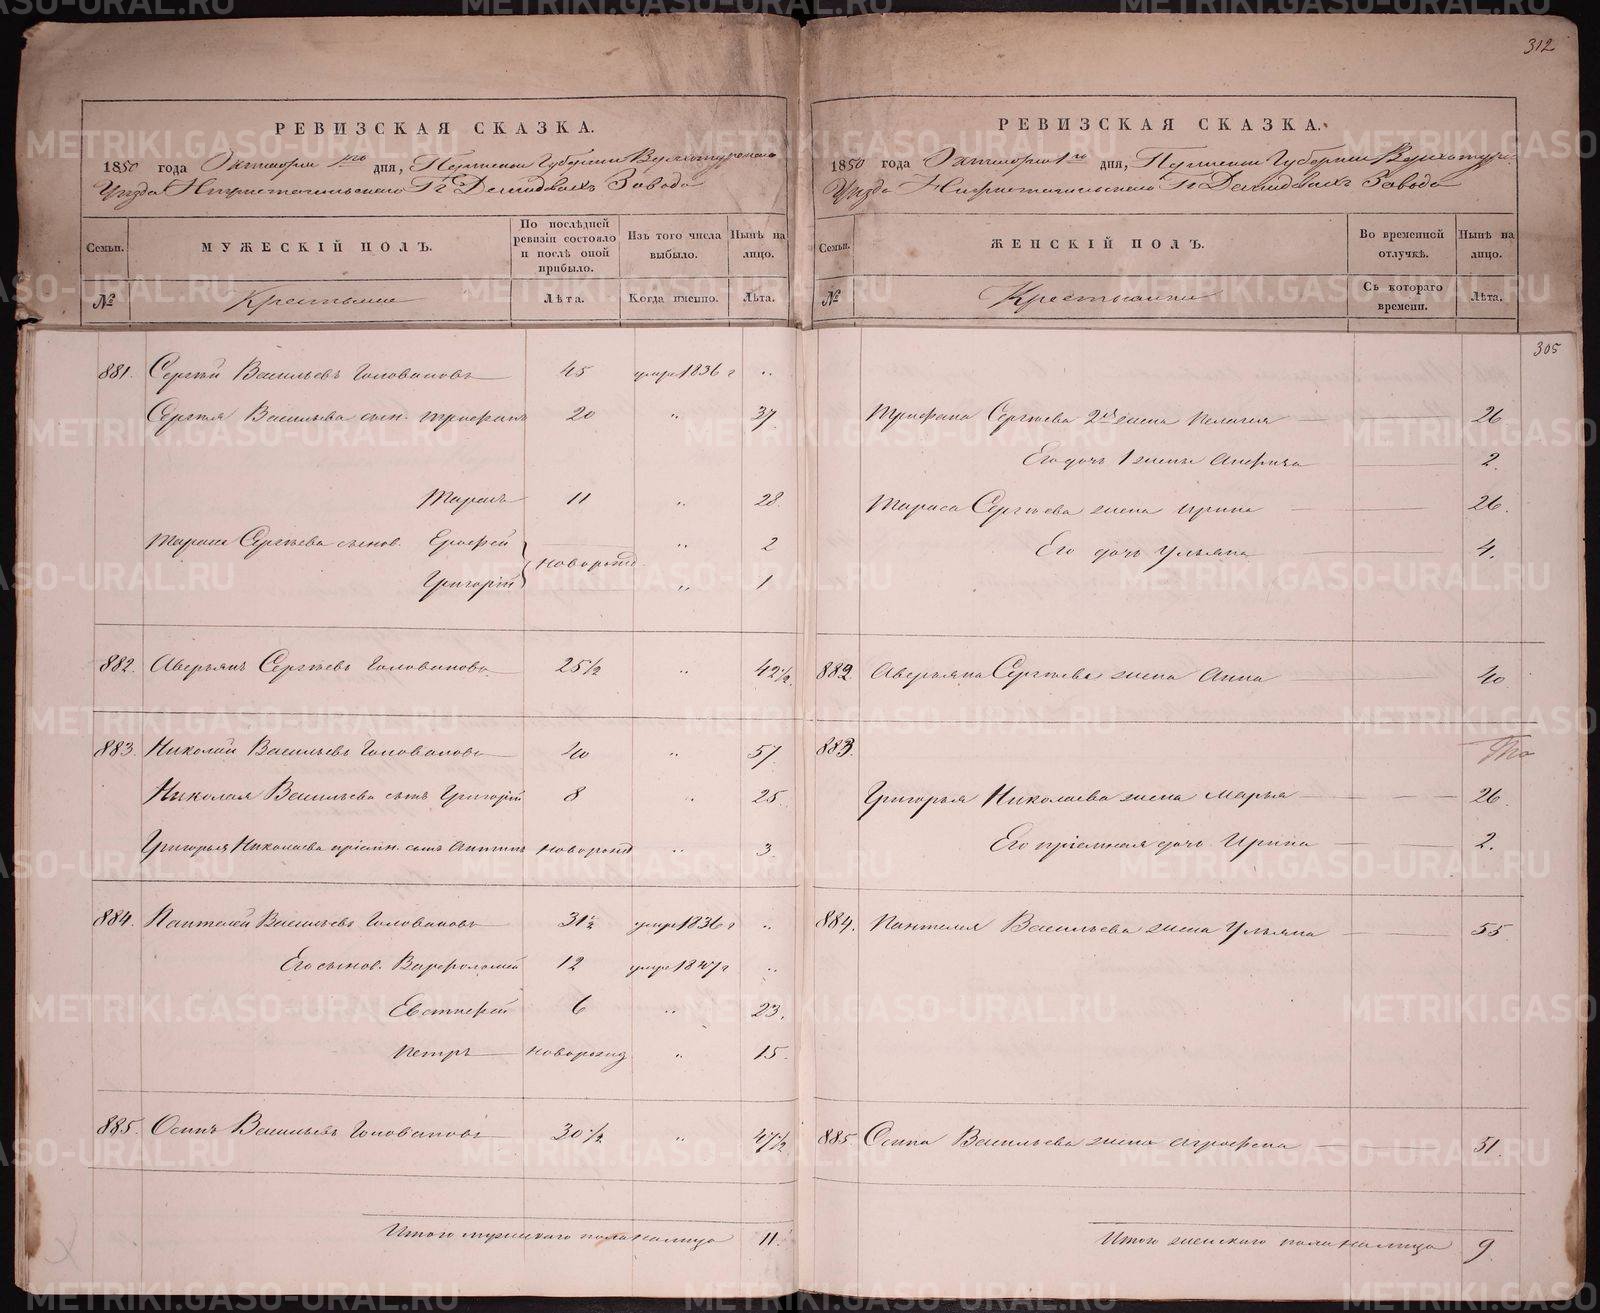 312
РЕВИЗСКАЯ СКАЗКА.
1850 года Октября 1го дня, Пермской Губернии Верхотурскаго
Уезда Нижнетагильскаго Гг Демидовыхъ Завода
Семьи.
МУЖЕСКІЙ ПОЛЪ.
По послѣдней ревизіи состояло и послѣ оной прибыло.
Изъ того числа выбыло.
Нынѣ на лицо.
№
Крестьяне
Лѣта.
Когда именно.
Лѣта.
881. Сергѣй Васильевъ Головановъ 45 умре 1836 г "
Сергѣя Васильева сын. Трифонъ 20 " 37
Тарасъ 11 " 28
Тараса Сергѣева сынов. Ерофей новорожд. " 2
Григорій " 1
882. Аверьянъ Сергѣевъ Головановъ 25½ " 42½
883. Николай Васильевъ Головановъ 40 " 57
Николая Васильева сынъ Григорій 8 " 25
Григорья Николаева пріемн. сынъ новорожд " 3
884. Пантелей Васильевъ Головановъ 31½ умре 1836 г "
Его сынов. Варфоломей 12 умре 1847 г "
Евстифей 6 " 23.
Петръ новорожд " 15.
885. Осипъ Васильевъ Головановъ 30½ " 47½
Итого мужескаго пола налицо 11.
РЕВИЗСКАЯ СКАЗКА.
1850 года Октября 1го дня, Пермской Губерніи Верхотур-
Уезда Нижнетагильскаго Гг Демидовыхъ Завода
Семьи.
ЖЕНСКІЙ ПОЛЪ.
Во временной отлучкѣ.
Нынѣ на лицо.
№
Крестьянки
Съ котораго времени.
Лѣта.
305
Трифона Сергѣева 2я жена Пелагея 26
Его дочь 1 жены Анфиса 2.
Тараса Сергѣева жена Ирина 26.
Его дочь Ульяна 4.
882. Аверьяна Сергѣева жена Анна 40
883.
Григорья Николаева жена Марья 26.
Его пріемная дочь Ирина 2.
884. Пантелея Васильева жена Ульяна 55
885 Осипа Васильева жена Агрофена 51.
Итого женскаго пола налицо 9
METRIKI.GASO-URAL.RU